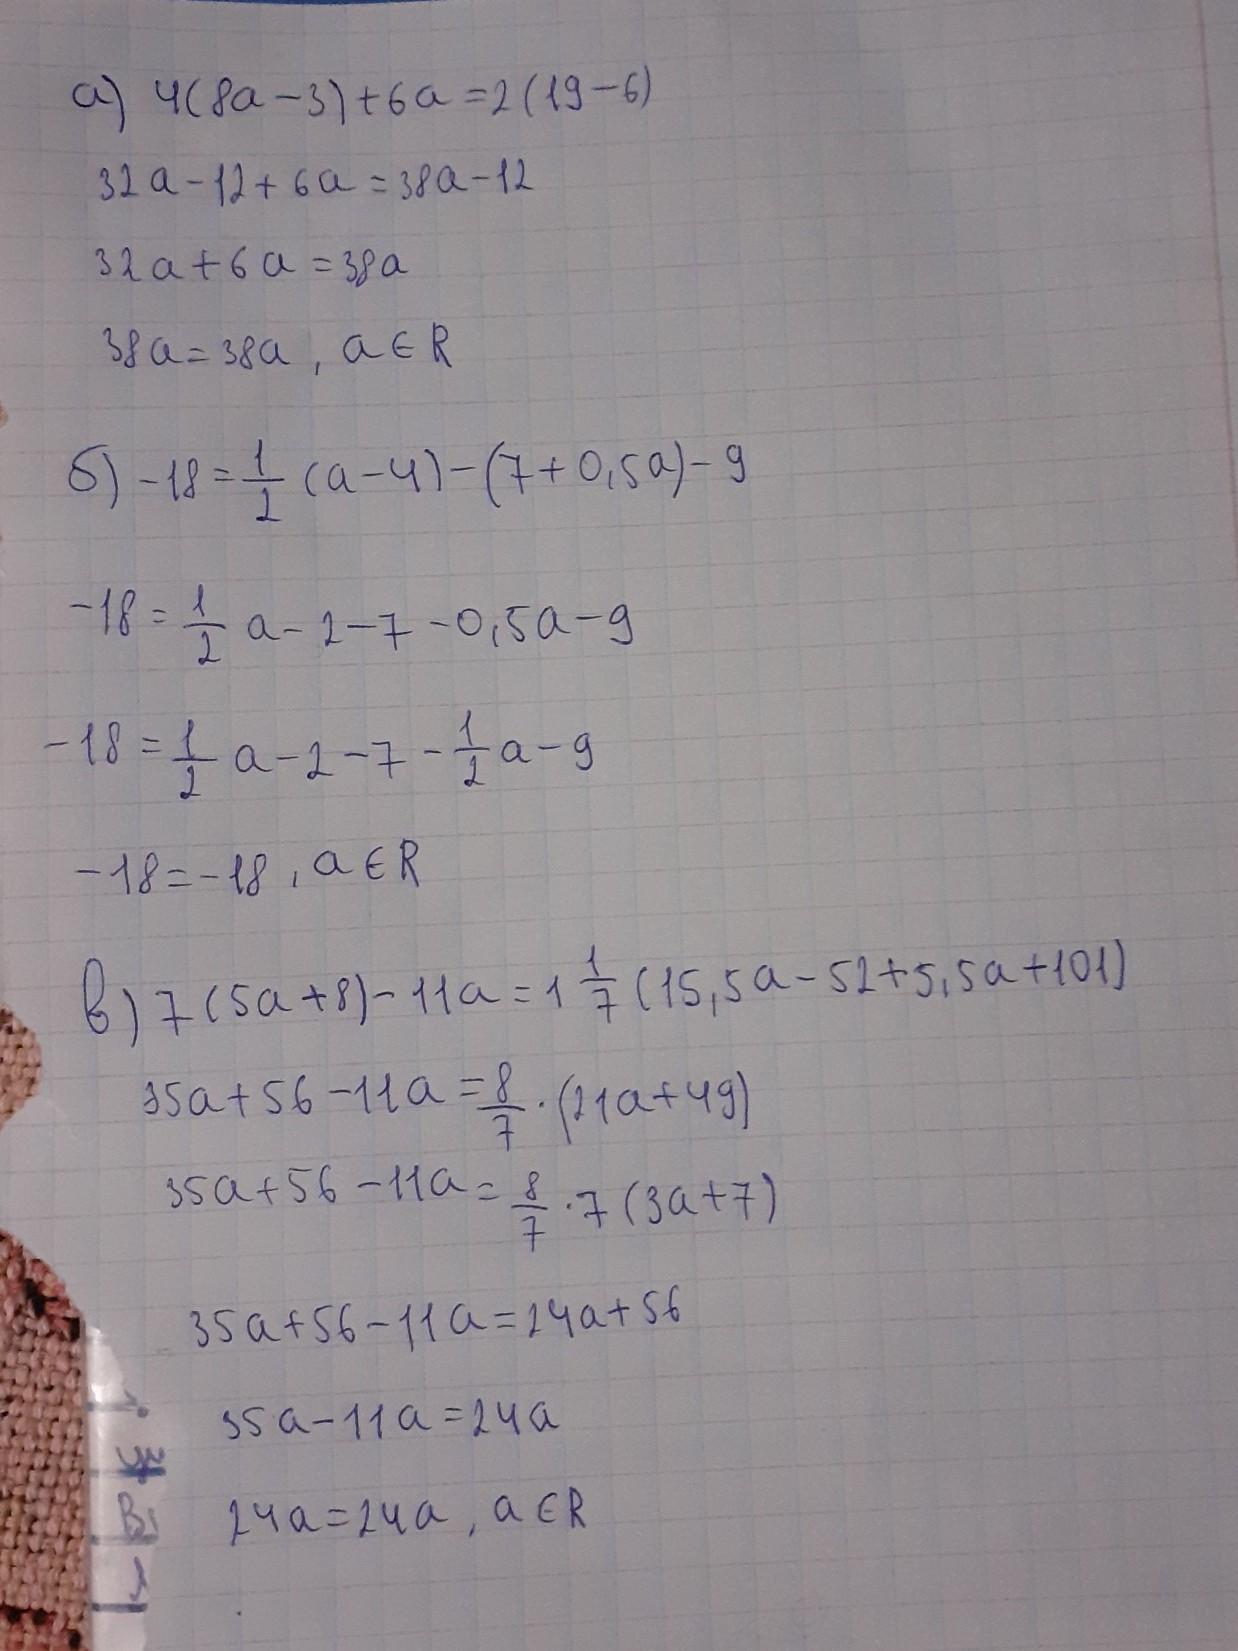 а) 4(8a-3)+6a=2(19-6)
32a-12+6a=38a-12
32a+6a=38a
38a=38a, a∈R
б) -18=1/2(a-4)-(7+0,5a)-9
-18=1/2a-2-7-0,5a-9
-18=1/2a-2-7-1/2a-9
-18=-18, a∈R
в) 7(5a+8)-11a=1 1/7(15,5a-52+5,5a+101)
35a+56-11a=8/7·(21a+49)
35a+56-11a=8/7·7(3a+7)
35a+56-11a=24a+56
35a-11a=24a
24a=24a, a∈R